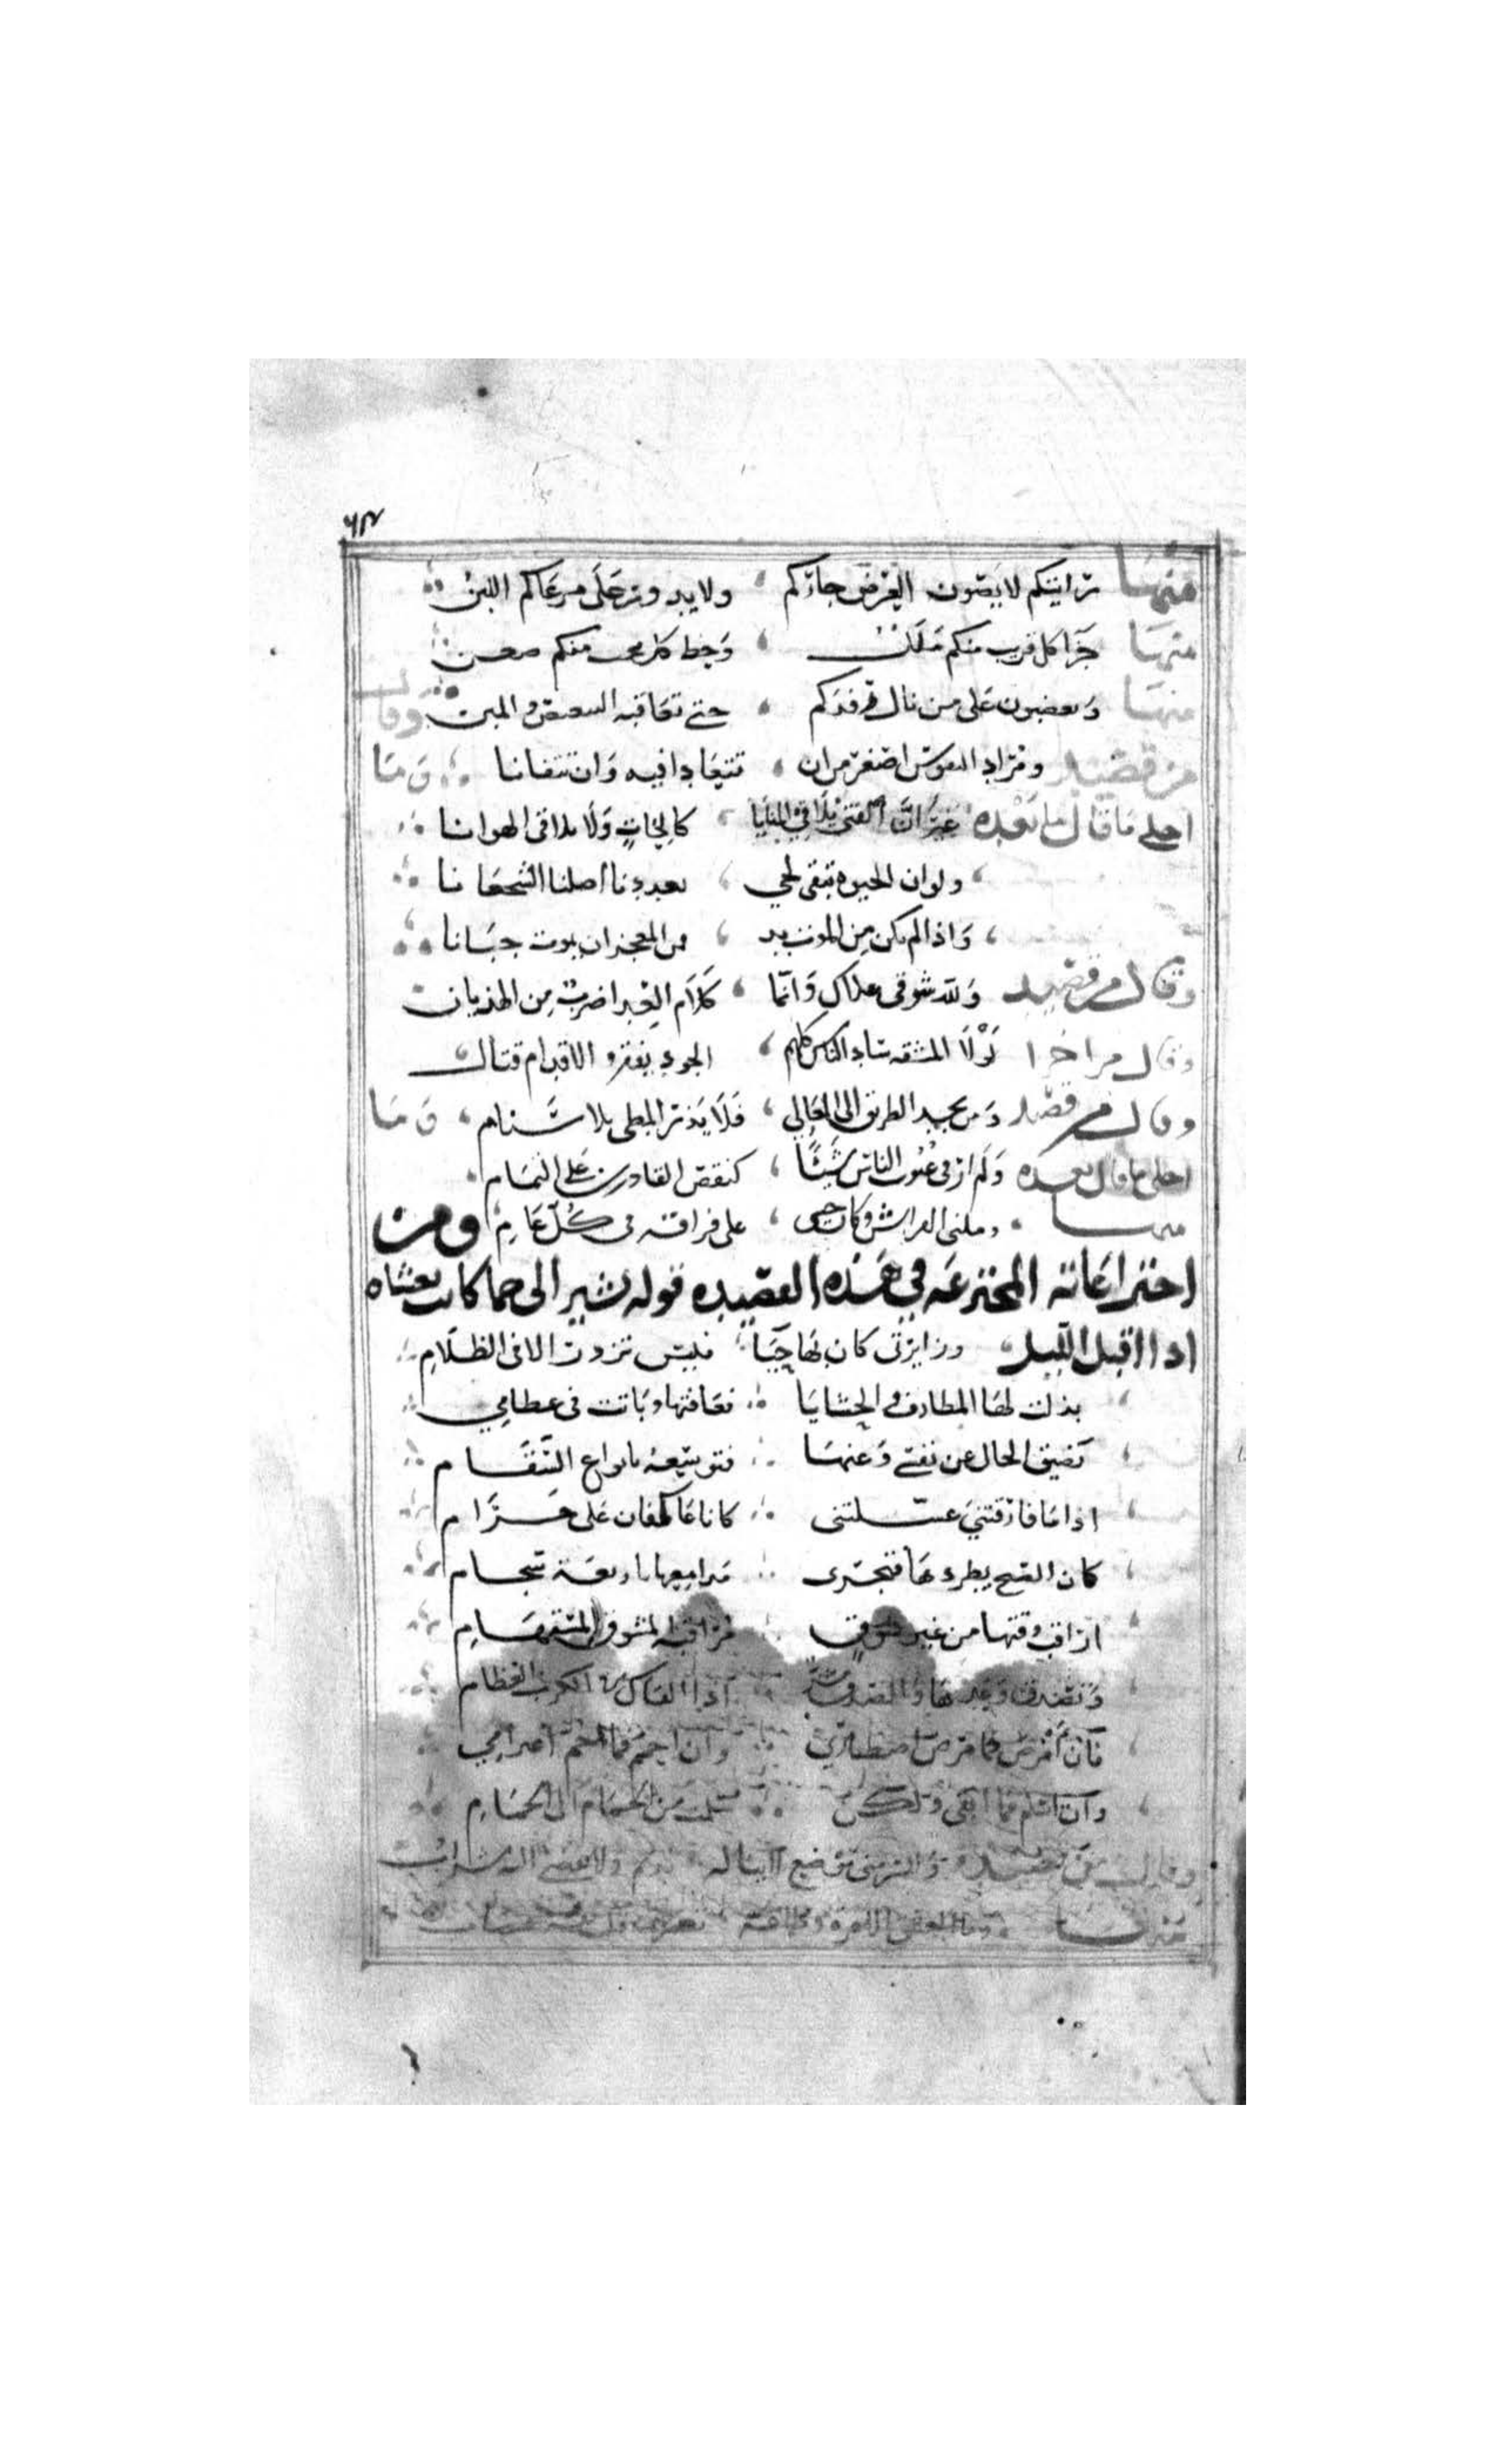 منها رأيتكم لا يصون العرض جاركم ولا يدر على مرعاكم اللبن
منها جزا كل قريب منكم ملل وحظ كل محب منكم ضغن
منها وتغضبون على من نال رفدكم حتى تعاقبه التنغيص والمنن وقال
من قصيد ومراد النفوس اصغر من ان تتعادا فيه وان تتفانا وما
احلى ما قال ما بعده غير ان الفتى يلاقي المنايا كالحات ولا يلاقى الهوانا
ولو ان الحيوة تبقى لحي لعددنا اضلنا الشجعانا
واذا لم يكن من الموت بد فمن العجز ان يموت جبانا
وقال من قصيد ولله في علاك وانما كلام العدا ضرب من الهذيان
وقال من اخرا لولا المشقه ساد الناس كلهم الجود يفقر والاقدام قتال
وقال من قصيد ومن يجد الطريق الى المعالي فلا يذر المطى بلا سنام وما
احلى ما قال بعده ولم ار في عيوب الناس شيئا كنقص القادرين على التمام
منها وملني الفراش وكان جنبي على فراقه في كل عام ومن
اختراعاته المخترعه في هذه القصيده قوله يشير الى حما كانت تغشاه
اذا اقبل الليل وزايرتى كان بها حيا فليس تزور الا فى الظلام
بذلت لها المطارف والحشايا فعافتها وباتت فى عظامي
تضيق الحال عن نفسي وعنها فتوسعه بانواع السقام
اذا ما فارقتني غسلتنى كانا عاكفان على حرام
كان الصبح يطردها فتجرى مدامعها باربعة سجام
اراقب وقتها من غير شوق مراقبة المشوق المستهام
وتصدق وعدها والصدق شر اذا القاك فى الكرب العظام
فان امرض فما مرض اصطباري وان احمم فما احم اعتزامي
وان اسلم فما ابقى ولكن سلمت من الحمام الى الحمام
وقال من قصيده وللسر مني موضع لا يناله نديم ولا يفضي اليه شراب
منها وما العشق الا غره وطماعة